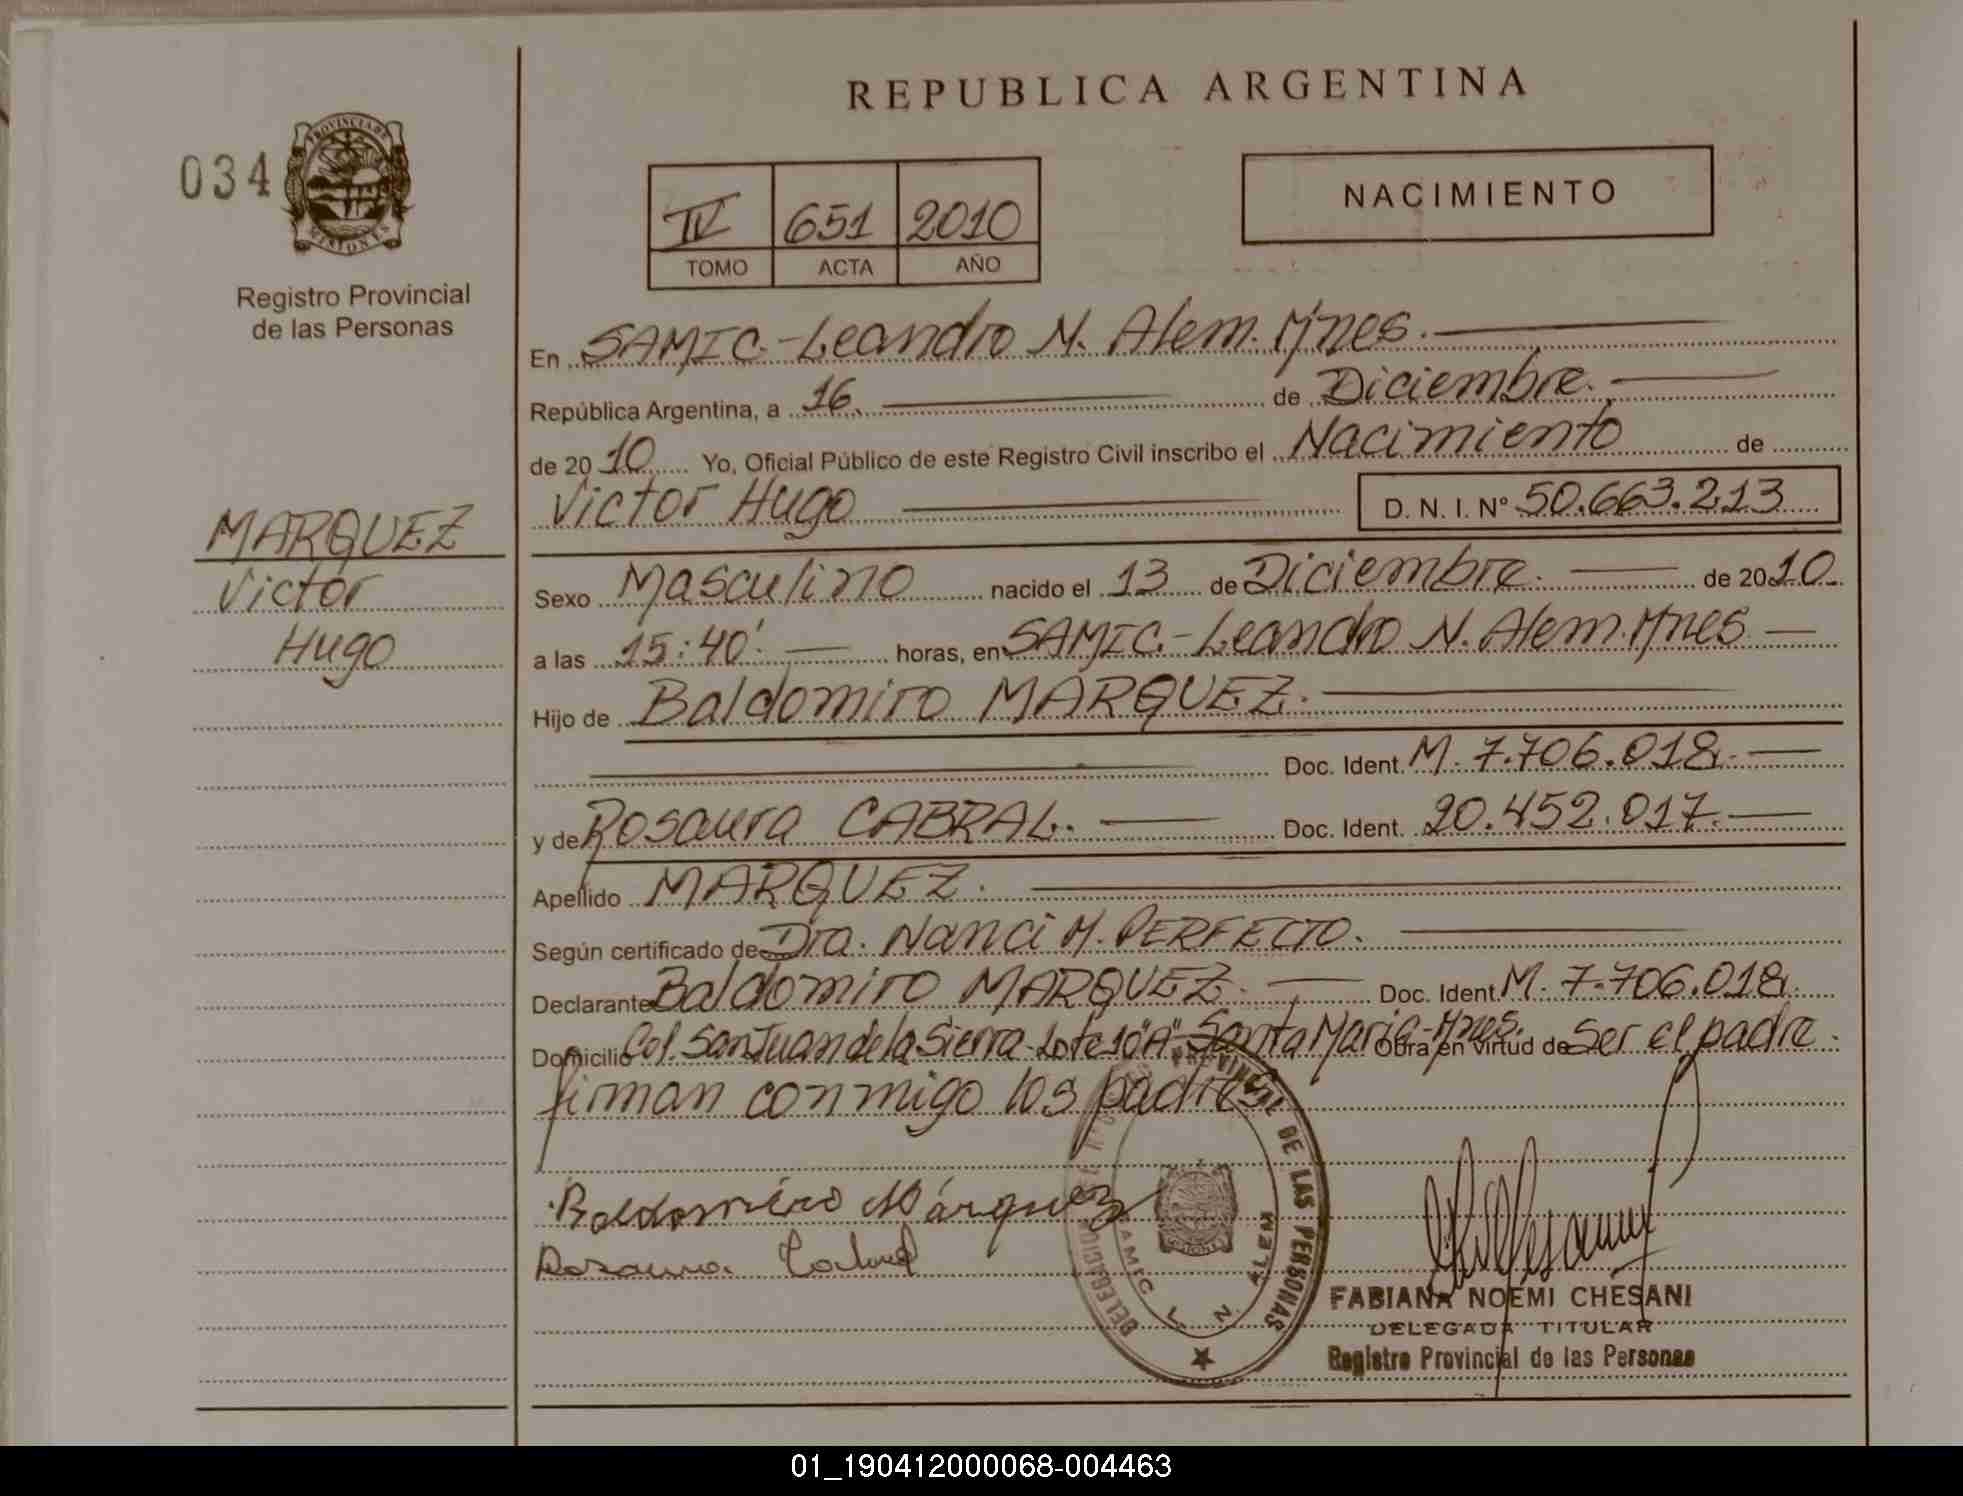 REPUBLICA ARGENTINA
034
PROVINCIA DE
MISIONES
Registro Provincial
de las Personas
IV 651 2010
TOMO ACTA AÑO
NACIMIENTO
En SAMIC.-Leandro N. Alem. Mnes.
República Argentina, a 16. de Diciembre.
de 20 10 Yo, Oficial Público de este Registro Civil inscribo el Nacimiento de
Victor Hugo D. N. I. Nº 50.663.213
MARQUEZ
Victor
Hugo
Sexo Masculino nacido el 13 de Diciembre. de 20 10
a las 15:40'. horas, en SAMIC.-Leandro N. Alem. Mnes
Hijo de Baldomiro MARQUEZ.
Doc. Ident. M. 7.706.018.
y de Rosaura CABRAL. Doc. Ident. 20.452.017.
Apellido MARQUEZ.
Según certificado de Dra. Nanci M. PERFECTO.
Declarante Baldomiro MARQUEZ. Doc. Ident. M. 7.706.018.
Domicilio Col. San Juan de la Sierra-Lote 10"A"-Santa Maria-Mnes. Obra en virtud de Ser el padre.
firman conmigo los padres
Baldomiro Márquez
Rosaura Cabral
PROVINCIAL DE LAS PERSONAS
DELEGACION
SAMIC L. N. ALEM
FABIANA NOEMI CHESANI
DELEGADA TITULAR
Registro Provincial de las Personas
01_190412000068-004463